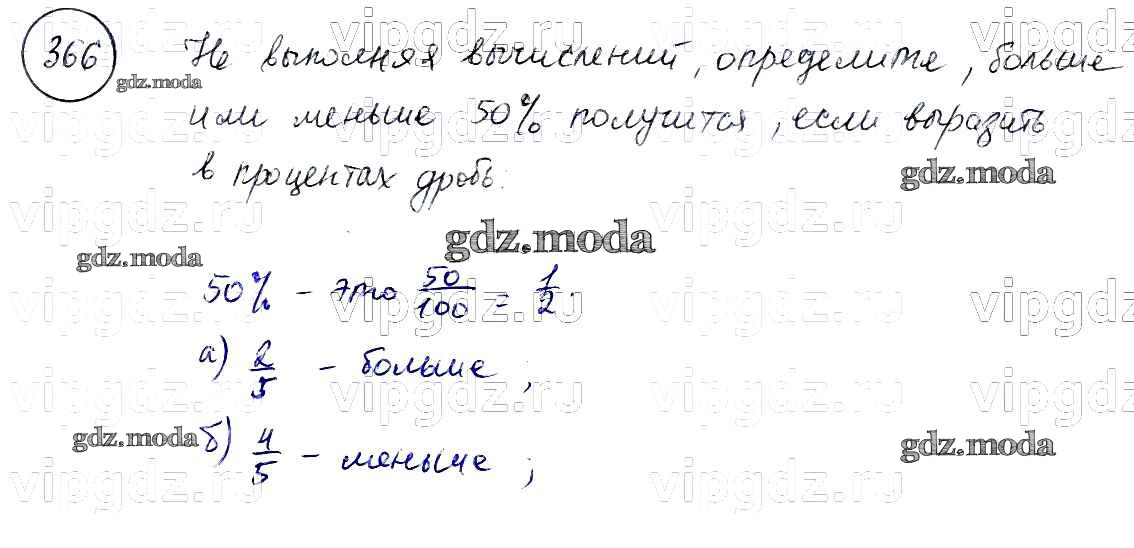 366 Не выполняя вычислений, определите, больше
или меньше 50% получится, если выразить
в процентах дробь:
50% – это 50/100 = 1/2.
а) 2/5 – больше ;
б) 4/5 – меньше ;
gdz.moda
gdz.moda
gdz.moda
gdz.moda
gdz.moda
gdz.moda
vipgdz.ru